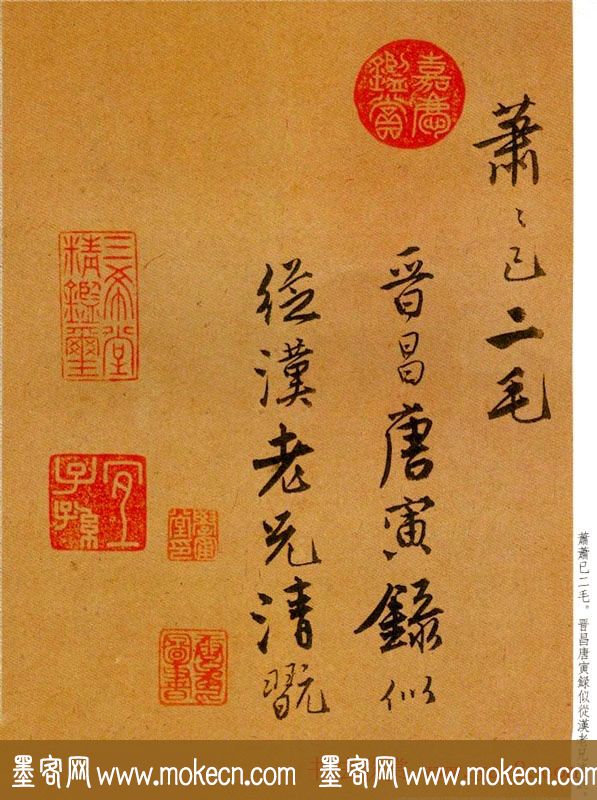 蕭〻已二毛
晉昌唐寅録似
從漢老兄清翫
嘉慶鑑賞
三希堂精鑑璽
宜子孫
蕭蕭已二毛。晋昌唐寅録似從漢老兄
墨客网www.mokecn.com 墨客网www.mokecn.com